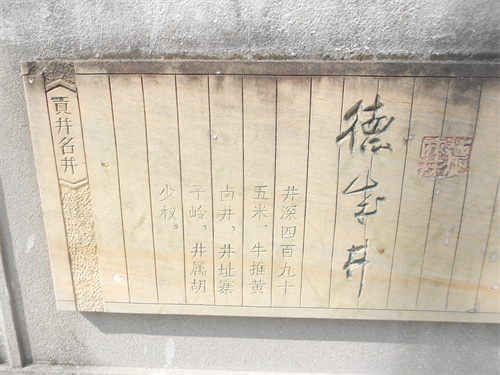 德成井
井深四百九十
五米，牛推黄
卤井，井址寨
子岭，井属胡
少权。
貢井名井